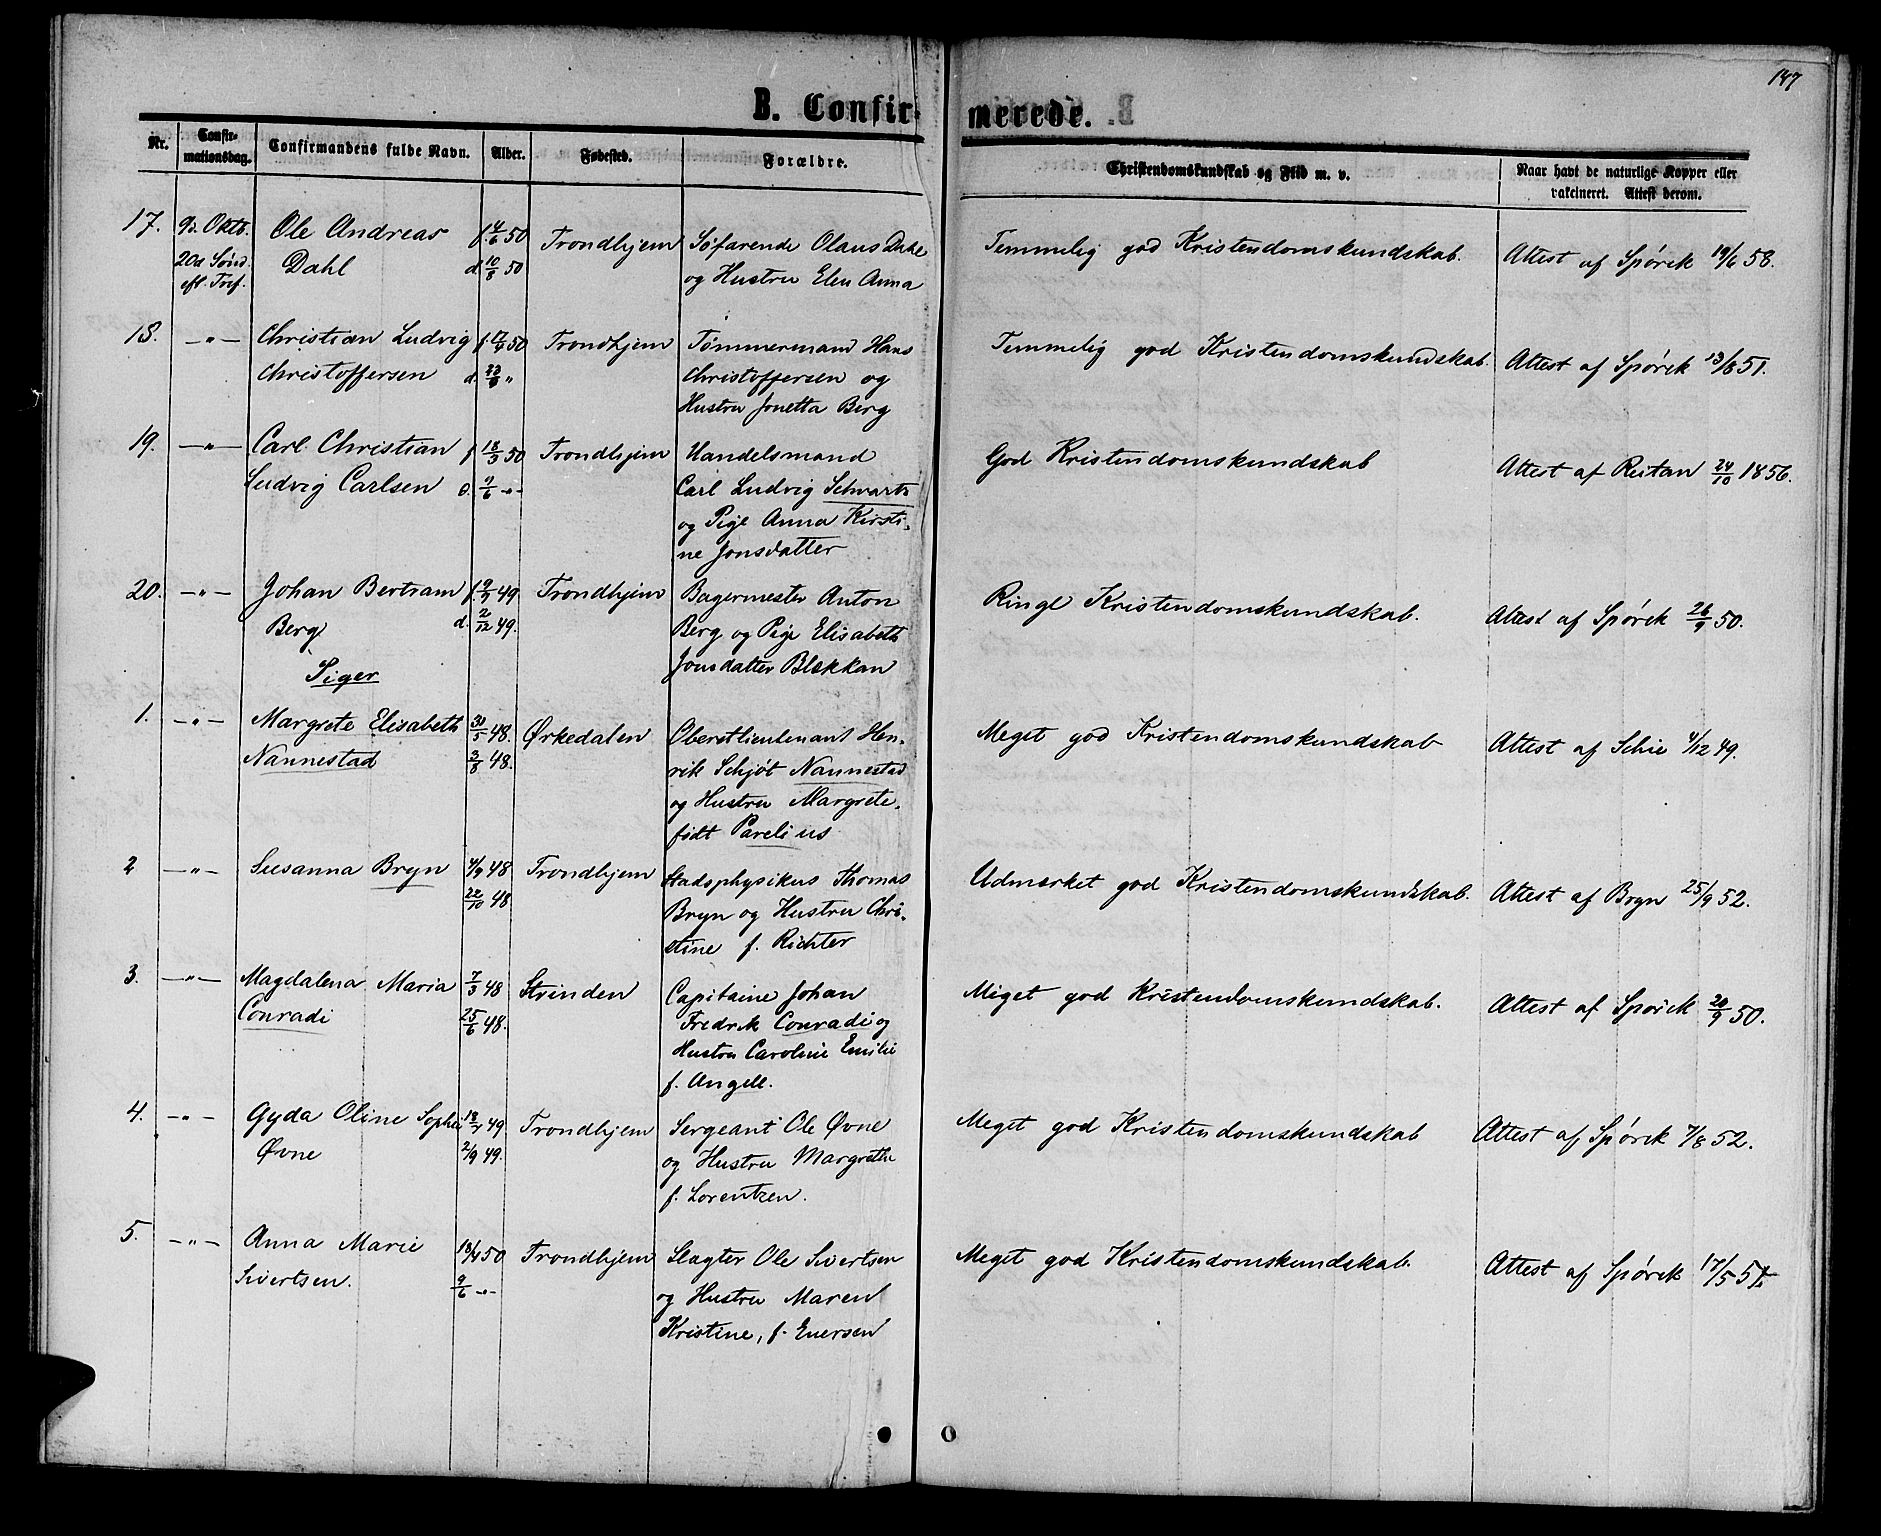 147
B. Confirmerede.
Nr. Confirmationsdag. Confirmandens fulde Navn. Alder. Fødested. Forældre. Christendomskundskab og Flid m. v. Naar havt de naturlige Kopper eller vakcineret. Attest derom.
17. 9de Oktb. Ole Andreas f. 4/6 50 Trondhjem Søfarende Olaus Dahl Temmelig god Kristendomskundskab. Attest af Spørck 19/6 58.
20d Sønd. Dahl d. 10/8 50 og Hustru Elen Anna
eft. Tref.
18. —"— Christian Ludvig 50 Trondhjem Tømmermand Hans Temmelig god Kristendomskundskab. Attest af Spørck 13/8 51.
Christoffersen d. " Christoffersen og
Hustru Jonetta Berg
19. —"— Carl Christian f. 18/3 50 Trondhjem Handelsmand God Kristendomskundskab Attest af Reitan 24/10 1856.
Ludvig Carlsen d. 9/6 -"- Carl Ludvig Schwartz
og Pige Anna Kirsti-
ne Jonsdatter
20. —"— Johan Bertram f. 9/9 49 Trondhjem Bagermester Anton Ringe Kristendomskundskab. Attest af Spørck 26/9 50.
Berg d. 2/12 49. Berg og Pige Elisabeth
Jonsdatter Blekkan
Piger
1. —"— Margrete Elisabeth 30/5 48. Ørkedalen Oberstlieutenant Hen- Meget god Kristendomskundskab Attest af Schie 4/12 49.
Nannestad 3/8 48. rik Schjøt Nannestad
og Hustru Margrete,
født Parelius
2 —"— Susanna Bryn 4/9 48 Trondhjem Stadsphysikus Thomas Udmærket god Kristendomskundskab. Attest af Bryn 25/9 52.
22/10 48 Bryn og Hustru Chri-
stine f. Richter
3. —"— Magdalena Maria 7/3 48 Strinden Capitaine Johan Meget god Kristendomskundskab. Attest af Spørck 20/9 50.
Conradi 25/6 48. Fredrik Conradi og
Hustru Caroline Emilie
f. Angell.
4. —"— Gyda Oline Sophie 49 Trondhjem Sergeant Ole Øvne Meget god Kristendomskundskab Attest af Spørck 7/8 52.
Øvne 2/9 49. og Hustru Margrethe
f. Lorentzen.
5. —"— Anna Marie 18/4 50 Trondhjem Slagter Ole Sivertsen Meget god Kristendomskundskab. Attest af Spørck 17/5 54
Sivertsen. 9/6 -"- og Hustru Maren
Kristine, f. Enersen